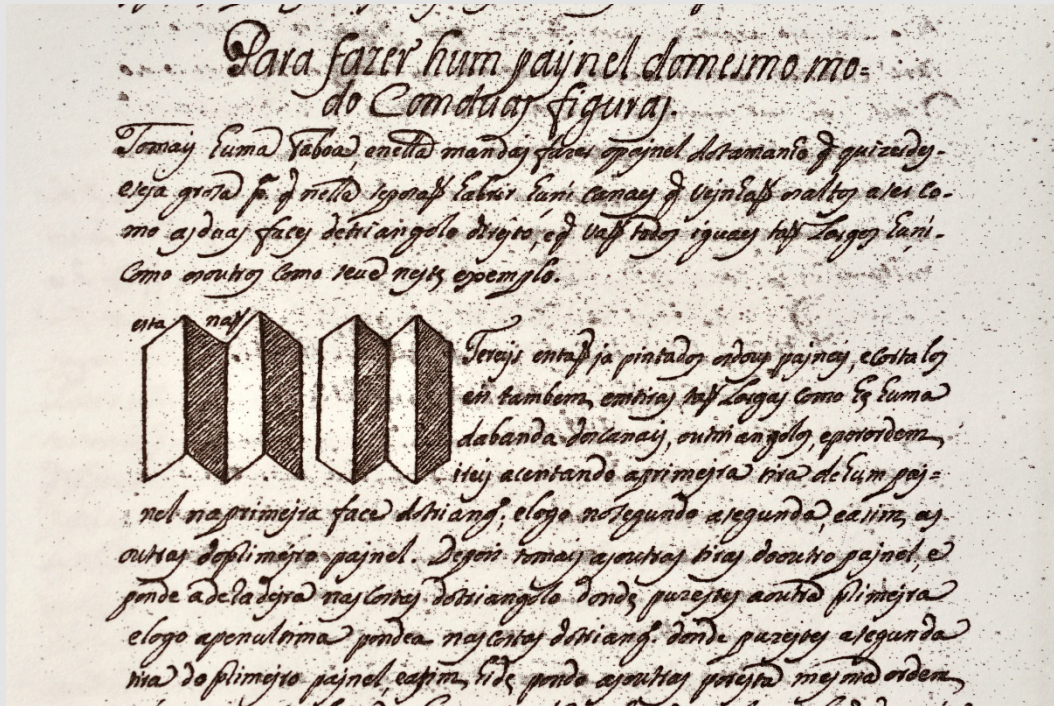 Para fazer hum painel do mesmo mo=
do Com duas figuras.
Tomay huma Taboa, e nella manday fazer o peynel do tamanho q̃ quizerdes.
e seja grosa p.ª q̃ nella se posaõ labrar huns canaes q̃ venhaõ no alto a ser co-
mo as duas faces de triangolo direyto, e q̃ vaõ todos iguaes taõ Largos huns.
como os outros como se ve neste exemplo.
esta naõ
Tereys entaõ ja pintados os dous paineis, e Cortalos
eis tambem, em tiras taõ Largas como he huma
da banda dos canais, ou triangolos, e por ordem,
ireys acentando a primeyra tira de hum pay=
nel na primeyra face do triang.º, e logo no segundo a segunda, e asim, as
outras do plimeyro paynel. Depois tomais as outras tiras do outro paynel, e
ponde a deladeyra nas Costas do triangolo donde puzestes a outra plimeyra
e logo a penultima pondea nas costas do triang.º donde puzestes a segunda
tira do plimeyro paynel, e asim, hide pondo as outras por esta mesma ordem,